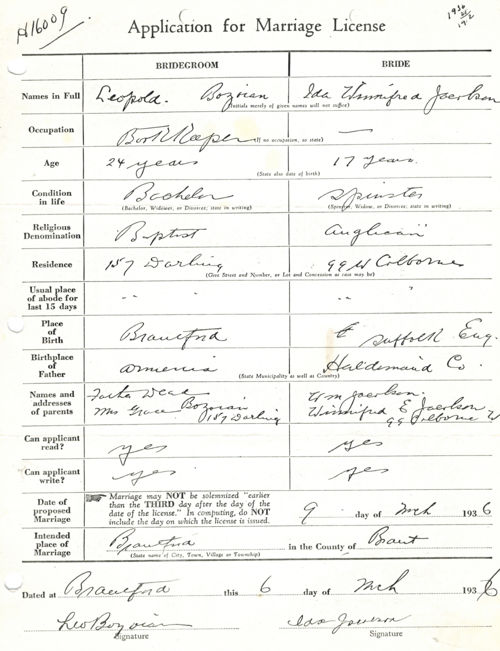 H16009
1936
Application for Marriage License
BRIDEGROOM BRIDE
Names in Full Leopold. Bozoian Ida Winnifred Jacobson
(Initials merely of given names will not suffice)
Occupation BookKeeper —
(If no occupation, so state)
Age 24 years 17 years.
(State also date of birth)
Condition in life Bachelor Spinster
(Bachelor, Widower, or Divorcee, state in writing) (Spinster, Widow, or Divorcee, state in writing)
Religious Denomination Baptist Anglican
Residence 157 Darling 99 W Colborne
(Give Street and Number, or Lot and Concession as case may be)
Usual place of abode for last 15 days " " " "
Place of Birth Brantford Suffolk Eng.
Birthplace of Father Armenia Haldemand Co.
(State Municipality as well as Country)
Names and addresses of parents Father Dead Wm Jacobson.
Mrs Grace Bozoian 157 Darling Winnifred E Jacobson 99 Colborne W
Can applicant read? yes yes
Can applicant write? yes yes
Date of proposed Marriage
Marriage may NOT be solemnized "earlier
than the THIRD day after the day of the
date of the license." In computing, do NOT
include the day on which the license is issued.
9 day of Mch 1936
Intended place of Marriage Brantford in the County of Brant
(State name of City, Town, Village or Township)
Dated at Brantford this 6 day of Mch 1936
Leo Bozoian Ida
Signature Signature